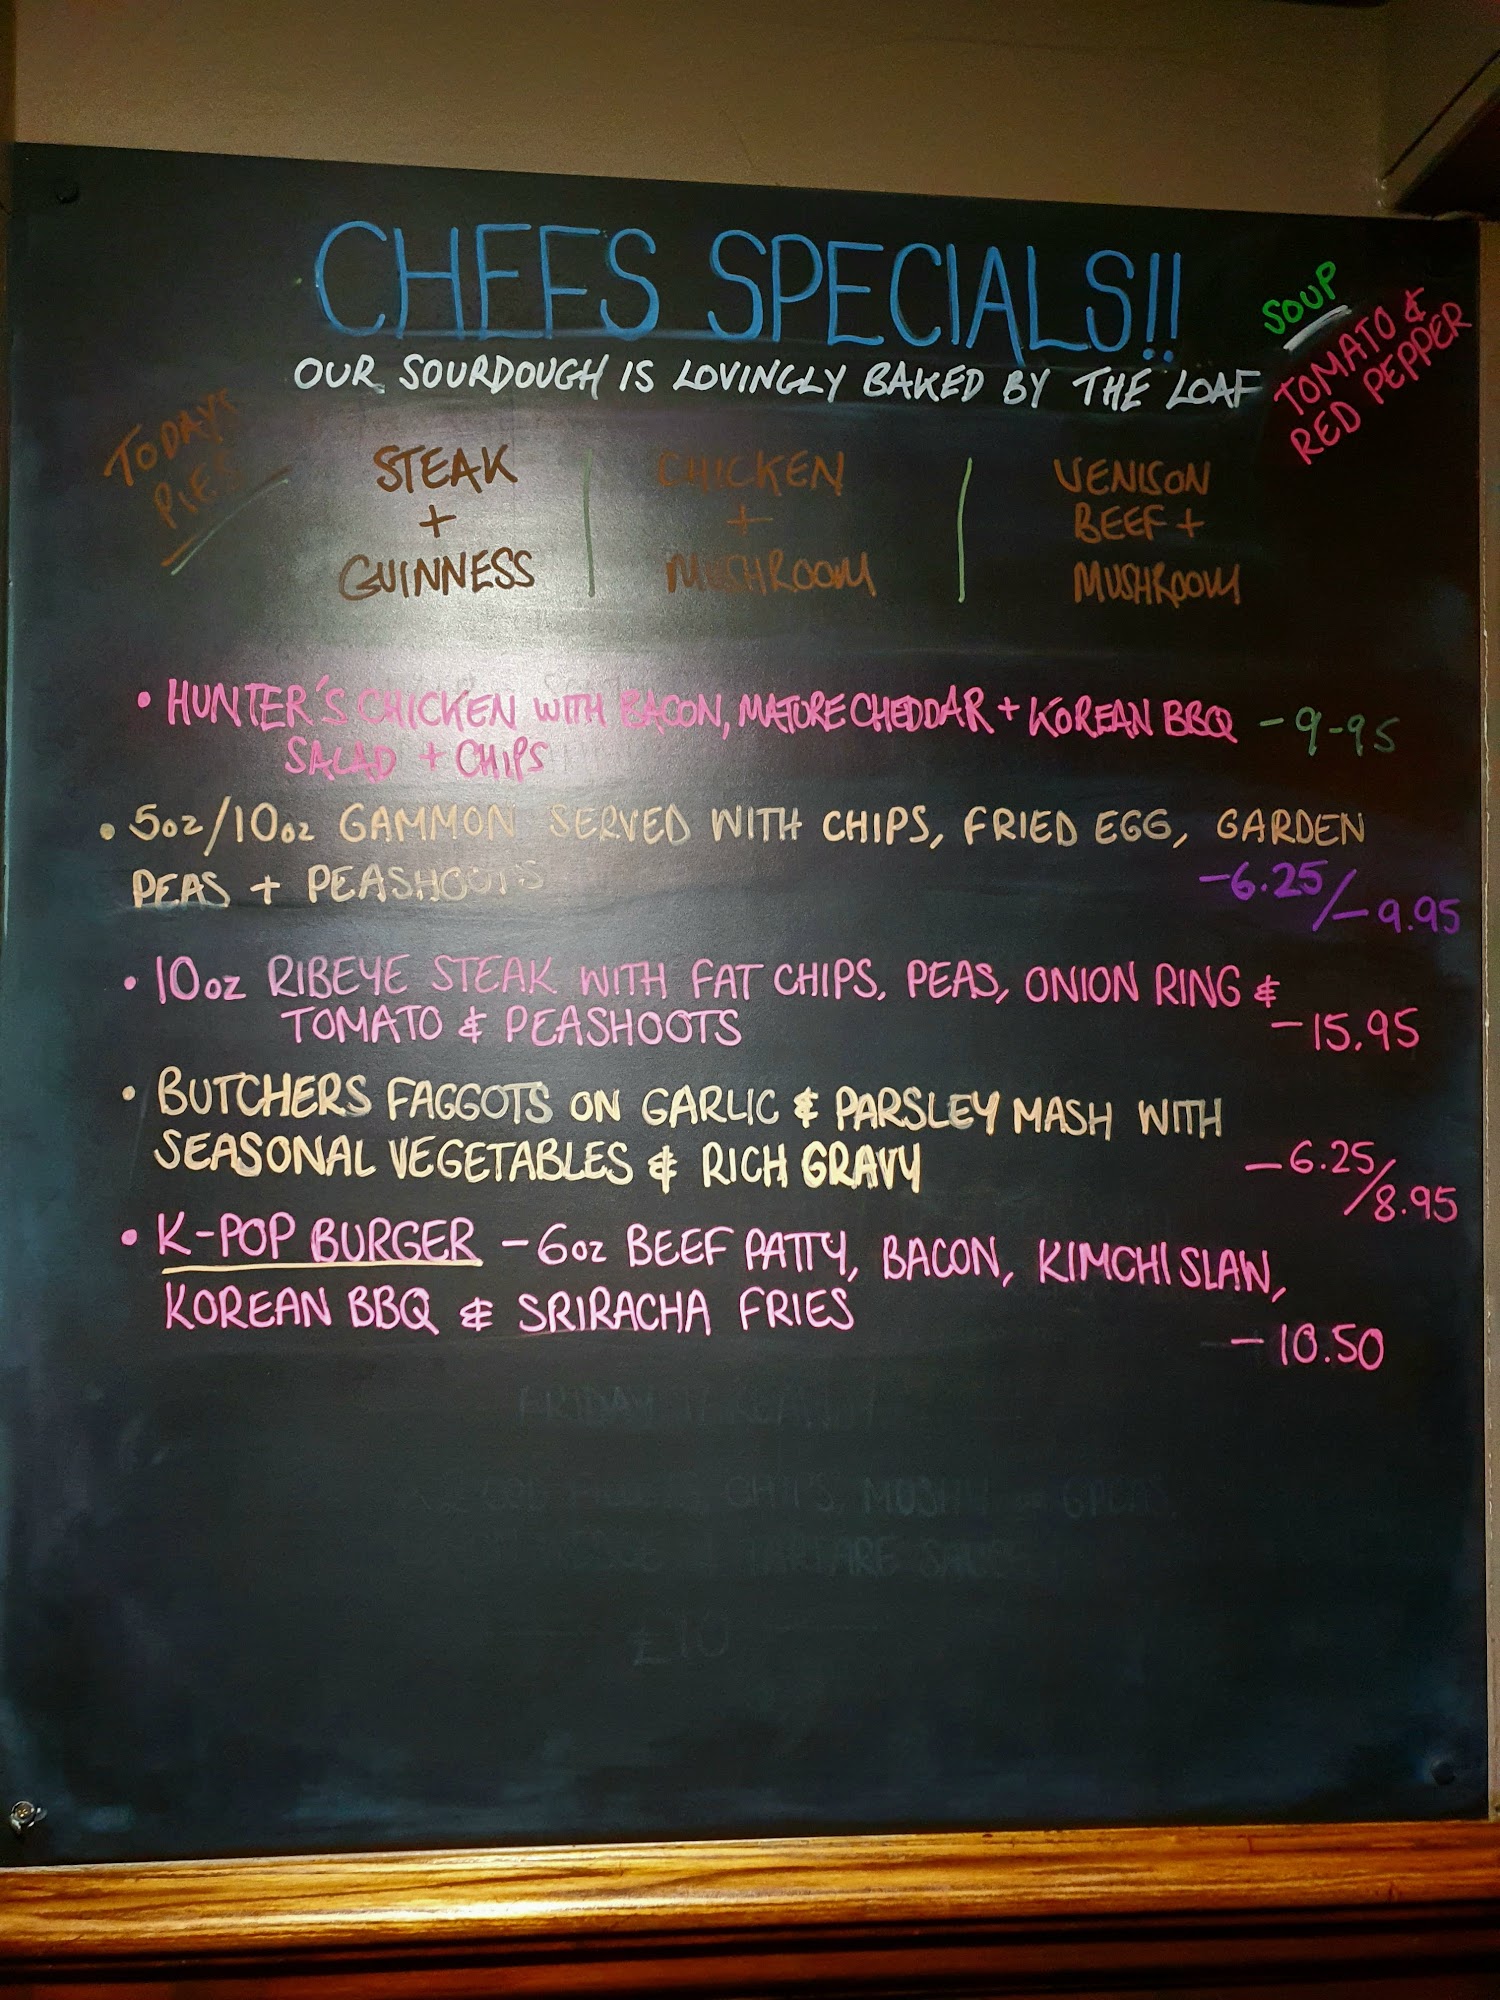 CHEFS SPECIALS!!
OUR SOURDOUGH IS LOVINGLY BAKED BY THE LOAF
SOUP
TOMATO &
RED PEPPER
TODAYS
PIES
STEAK
+
GUINNESS
CHICKEN
+
MUSHROOM
VENISON
BEEF +
MUSHROOM
• HUNTER'S CHICKEN WITH BACON, MATURE CHEDDAR + KOREAN BBQ - 9-95
SALAD + CHIPS
• 5oz/10oz GAMMON SERVED WITH CHIPS, FRIED EGG, GARDEN
PEAS + PEASHOOTS -6.25/-9.95
• 10oz RIBEYE STEAK WITH FAT CHIPS, PEAS, ONION RING &
TOMATO & PEASHOOTS -15.95
• BUTCHERS FAGGOTS ON GARLIC & PARSLEY MASH WITH
SEASONAL VEGETABLES & RICH GRAVY -6.25/8.95
• K-POP BURGER - 6oz BEEF PATTY, BACON, KIMCHI SLAW,
KOREAN BBQ & SRIRACHA FRIES
- 10.50
FRIDAY
CHIPS, MUSHY
TARTARE SAUCE
£10